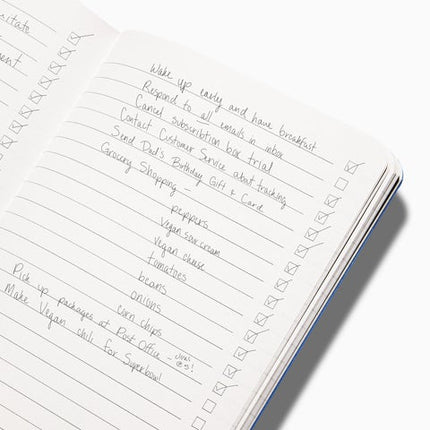 Wake up early and have breakfast
Respond to all emails in inbox
Cancel subscribtion box trial
Contact Customer Service about tracking
Send Dad's Birthday Gift & Card
Grocery Shopping -
peppers
vegan sour cream
vegan cheese
tomatoes
beans
onions
corn chips
Pick up packages at Post Office - @5!
Make Vegan chili for Superbowl